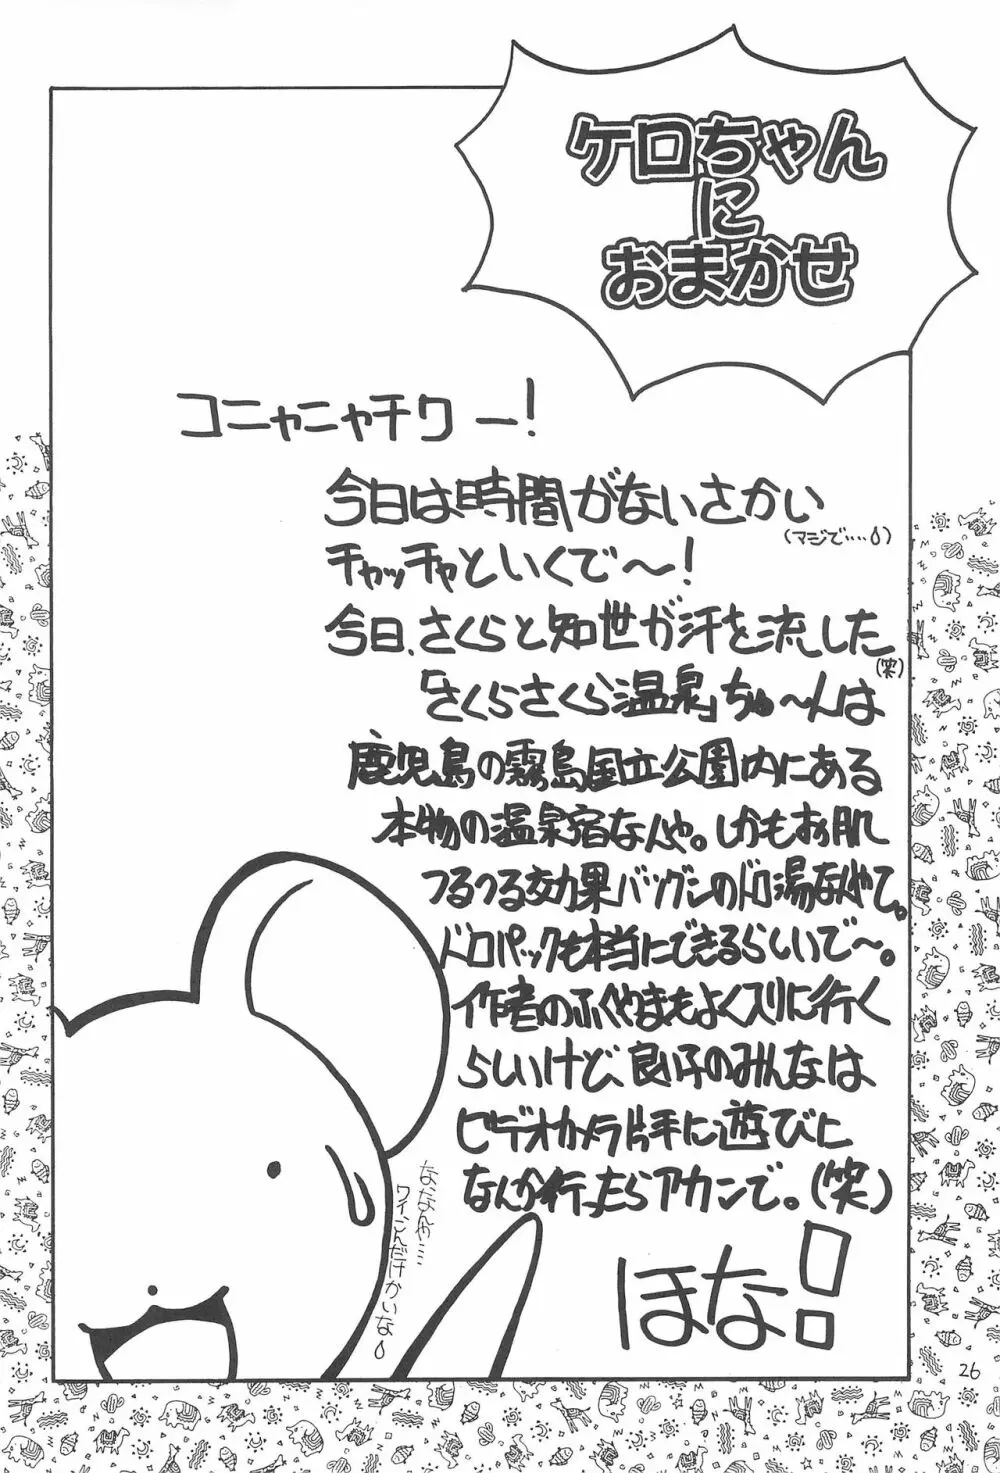 ケロちゃん
に
おまかせ
コニャニャチワー!
今日は時間がないさかい
(マジで‥‥)
チャッチャといくで〜!
今日、さくらと知世が汗を流した
(笑)
「さくらさくら温泉」ちゅ〜んは
鹿児島の霧島国立公園内にある
本物の温泉宿なんや。しかもお肌
つるつる効果バツグンのドロ湯なんやて。
ドロパックも本当にできるらしいで〜。
作者のふくやまもよく入りに行く
らしいけど、良い子のみんなは
ビデオカメラ片手に遊びに
なんか行ったらアカンで。(笑)
ほな!
ななんや…
ワイこんだけかいな
26